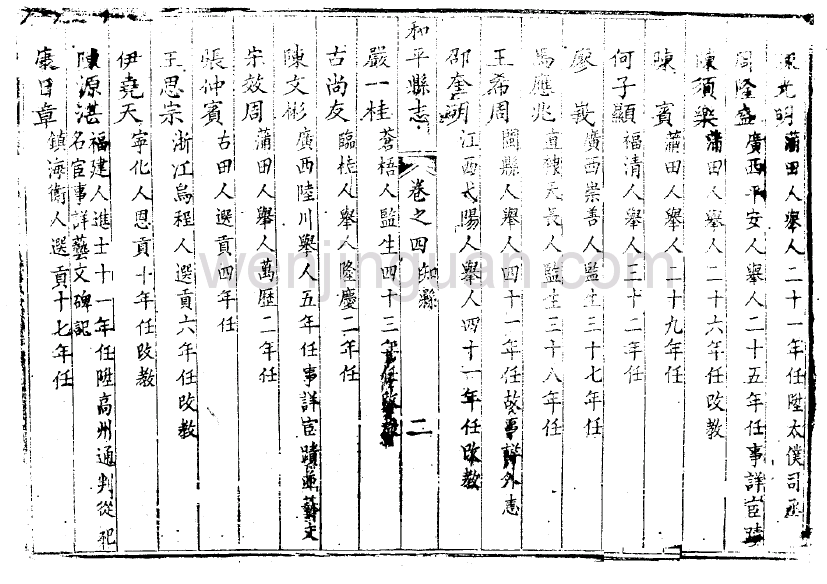 光明 蒲田人舉人二十一年任陞太僕司丞
周隆盛 廣西平安人舉人二十五年任事詳宦蹟
陳須樂 蒲田人舉人二十六年任改教
陳賓 蒲田人舉人二十九年任
何子顯 福清人舉人三十二年任
廖 廣西崇善人監生三十七年任
馬應兆 直隸天長人監生三十八年任
王希周 閩縣人舉人四十一年任故事詳外志
邵奎 江西弋陽人舉人四十一年任改教
和平縣志 卷之四 知縣 二
嚴一桂 蒼梧人監生四十三年任改教
古尚友 臨桂人舉人隆慶二年任
陳文彬 廣西陸川舉人五年任事詳宦蹟藝文
宋效周 蒲田人舉人萬歷二年任
張仲賓 古田人選貢四年任
王思宗 浙江烏程人選貢六年任改教
伊堯天 寧化人恩貢十年任改教
陳源湛 福建人進士十一年任陞高州通判從祀
名宦事詳藝文碑記
康日章 鎮海衛人選貢十七年任
wenjinguan.com